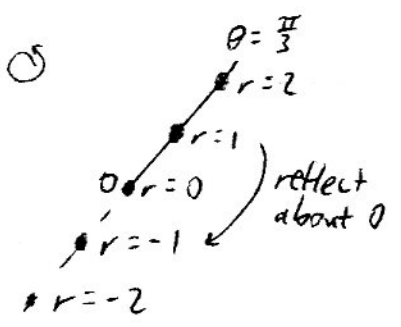 θ = π/3
r = 2
r = 1
0 r = 0
reflect
about 0
r = -1
r = -2